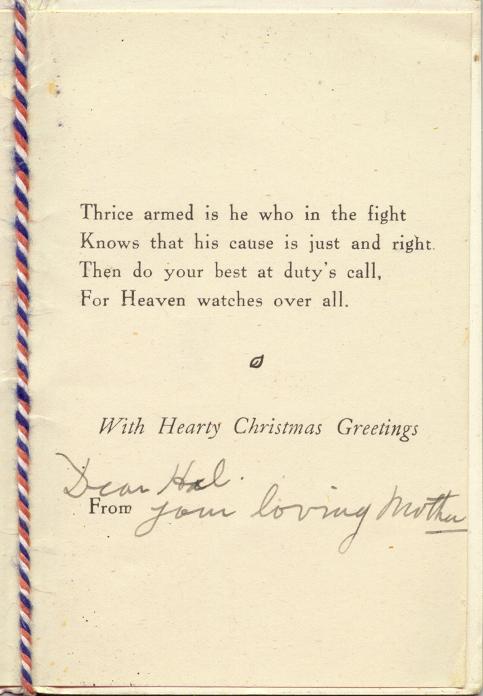 Thrice armed is he who in the fight
Knows that his cause is just and right.
Then do your best at duty's call,
For Heaven watches over all.
With Hearty Christmas Greetings
Dear Hal.
From your loving Mother